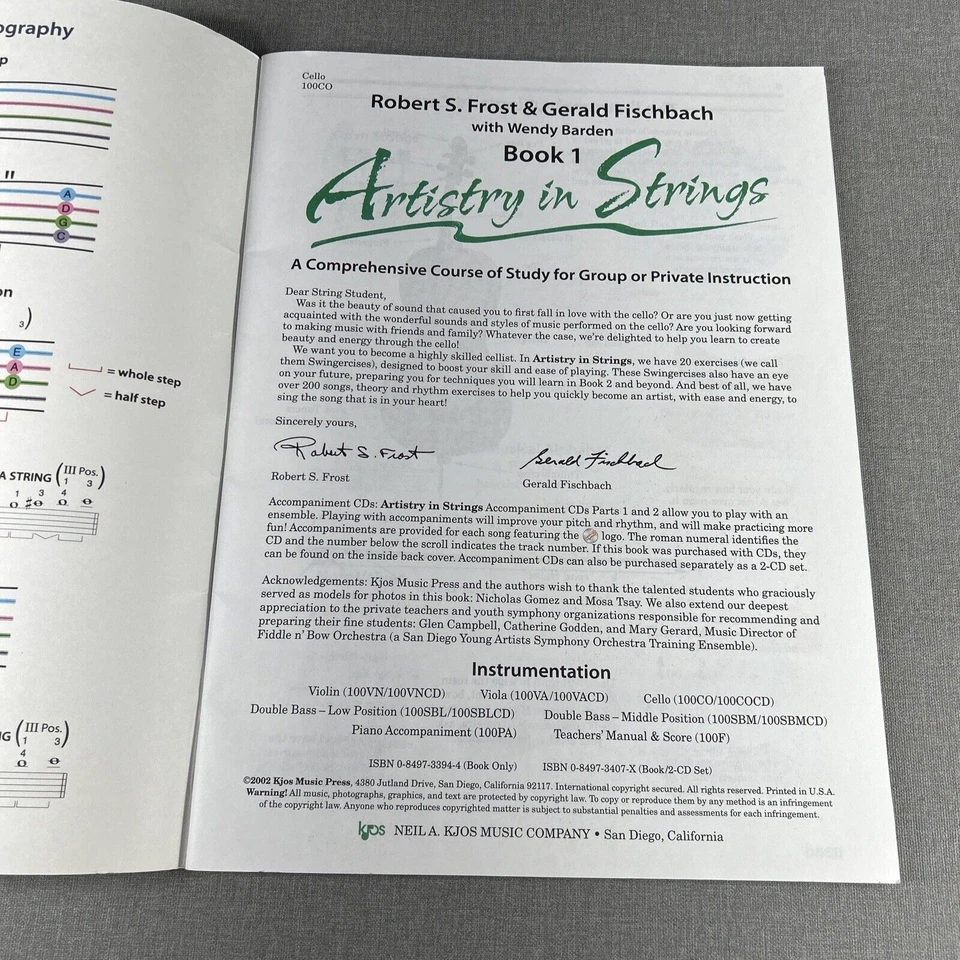 ography
p
"
A
D
G
C
on
3)
E
A
D
= whole step
= half step
A STRING (III Pos.
1 3)
1 3 4
G (III Pos.
1 3)
4
Cello
100CO
Robert S. Frost & Gerald Fischbach
with Wendy Barden
Book 1
Artistry in Strings
A Comprehensive Course of Study for Group or Private Instruction
Dear String Student,
Was it the beauty of sound that caused you to first fall in love with the cello? Or are you just now getting
acquainted with the wonderful sounds and styles of music performed on the cello? Are you looking forward
to making music with friends and family? Whatever the case, we're delighted to help you learn to create
beauty and energy through the cello!
We want you to become a highly skilled cellist. In Artistry in Strings, we have 20 exercises (we call
them Swingercises), designed to boost your skill and ease of playing. These Swingercises also have an eye
on your future, preparing you for techniques you will learn in Book 2 and beyond. And best of all, we have
over 200 songs, theory and rhythm exercises to help you quickly become an artist, with ease and energy, to
sing the song that is in your heart!
Sincerely yours,
Robert S. Frost
Gerald Fischbach
Robert S. Frost
Gerald Fischbach
Accompaniment CDs: Artistry in Strings Accompaniment CDs Parts 1 and 2 allow you to play with an
ensemble. Playing with accompaniments will improve your pitch and rhythm, and will make practicing more
fun! Accompaniments are provided for each song featuring the logo. The roman numeral identifies the
CD and the number below the scroll indicates the track number. If this book was purchased with CDs, they
can be found on the inside back cover. Accompaniment CDs can also be purchased separately as a 2-CD set.
Acknowledgements: Kjos Music Press and the authors wish to thank the talented students who graciously
served as models for photos in this book: Nicholas Gomez and Mosa Tsay. We also extend our deepest
appreciation to the private teachers and youth symphony organizations responsible for recommending and
preparing their fine students: Glen Campbell, Catherine Godden, and Mary Gerard, Music Director of
Fiddle n' Bow Orchestra (a San Diego Young Artists Symphony Orchestra Training Ensemble).
Instrumentation
Violin (100VN/100VNCD) Viola (100VA/100VACD) Cello (100CO/100COCD)
Double Bass – Low Position (100SBL/100SBLCD) Double Bass – Middle Position (100SBM/100SBMCD)
Piano Accompaniment (100PA) Teachers' Manual & Score (100F)
ISBN 0-8497-3394-4 (Book Only) ISBN 0-8497-3407-X (Book/2-CD Set)
©2002 Kjos Music Press, 4380 Jutland Drive, San Diego, California 92117. International copyright secured. All rights reserved. Printed in U.S.A.
Warning! All music, photographs, graphics, and text are protected by copyright law. To copy or reproduce them by any method is an infringement
of the copyright law. Anyone who reproduces copyrighted matter is subject to substantial penalties and assessments for each infringement.
kjos NEIL A. KJOS MUSIC COMPANY • San Diego, California